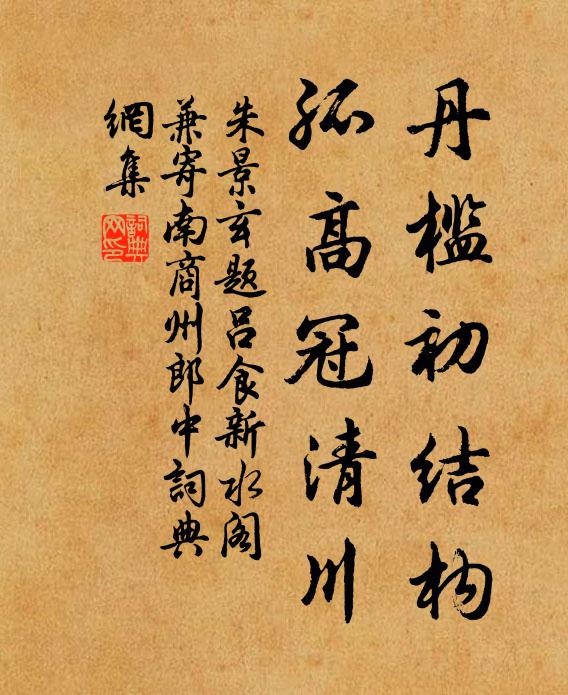 丹檻初结构
孤高冠清川
朱景玄题吕食新水阁
兼寄南商州郎中詞典
網集
詞典網印